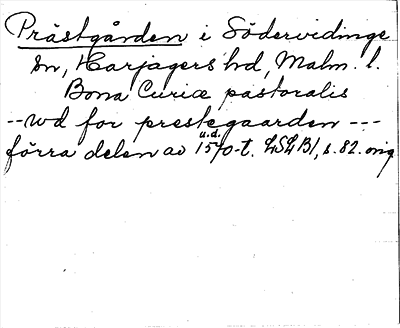 Prästgården i Södervidinge
sn, Harjagers hd, Malm. l.
Bona Curiæ pastoralis
--wd for prestegaarden ---
u.d.
förra delen av 1570-t. LSLB1, s. 82. orig